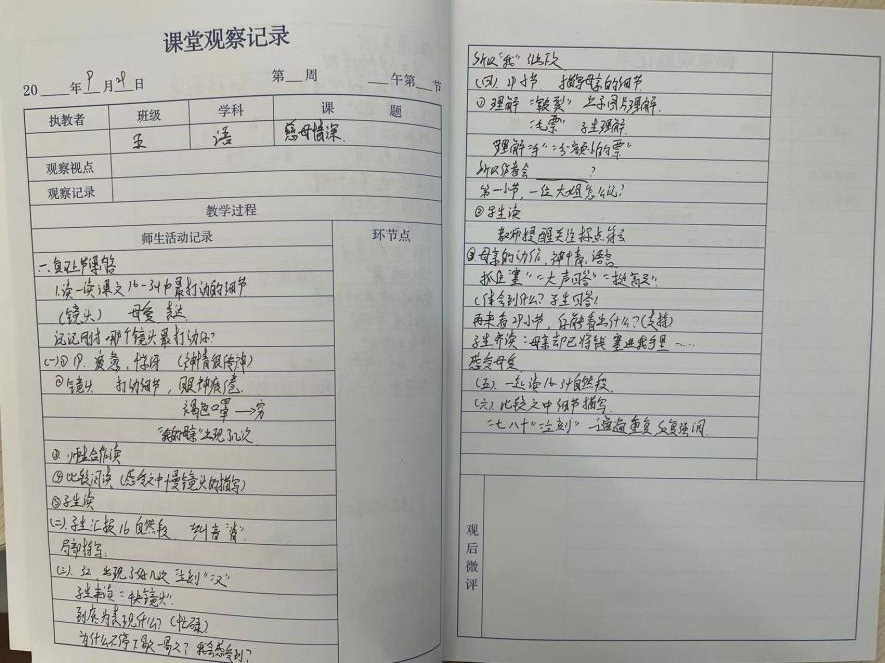 课堂观察记录
20 年 9 月 29 日 第 周 午第 节
执教者 班级 学科 课 题
五 语 慈母情深
观察视点
观察记录
教学过程
师生活动记录 环节点
一、复习上节课
1.读一读课文16-34中最打动的细节
(镜头) 母爱 表达
说说刚才哪个镜头最打动你?
(一)① 19 疲惫,惊讶 (神情很传神)
②镜头 打动细节,眼神疲惫
褐色口罩→穷
"我的母亲"出现了几次
③ 师生合作读
④比较阅读 (感受文中慢镜头的描写)
⑤学生读
(二)学生汇报16自然段
局部特写:
(三) 32 出现了好几次"立刻""又"
学生来读:"快镜头"
到底为表现什么? (忙碌)
为什么不停下歇一歇?
所以"我"
(四) 29节 描写母亲的细节
①理解"皲裂" 出示图片理解
"毛票" 学生理解
理解"手" "分额小的票"
所以作者会 ?
第一小节,一位大姐怎么说?
②学生读
教师提醒关注标点符号
③母亲的动作,神情,语言
抓住"塞""大声回答"
体会到什么? 学生回答
再来看29小节,你能看出什么?(支持)
学生齐读:母亲却已将钱塞进我手里……
感受母爱
(五)一起读16-34自然段
(六)比较文中细节描写
"七八十""立刻" 一遍遍重复 反复强调
观后微评